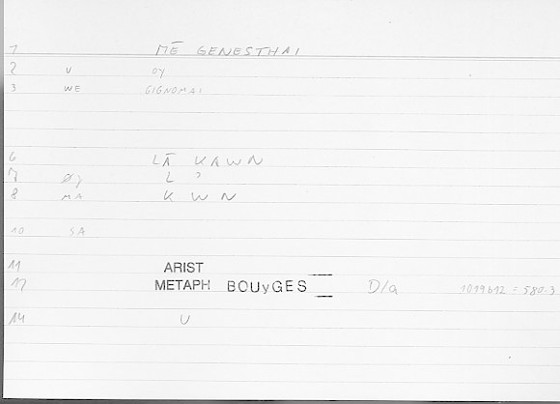 1 MĒ GENESTHAI
2 V OY
3 WE GIGNOMAI
6 LĀ KAWN
7 ØY L ʾ
8 MA K W N
10 SA
11 ARIST
12 METAPH BOUyGES D/a 1019b12 = 580.3
14 U